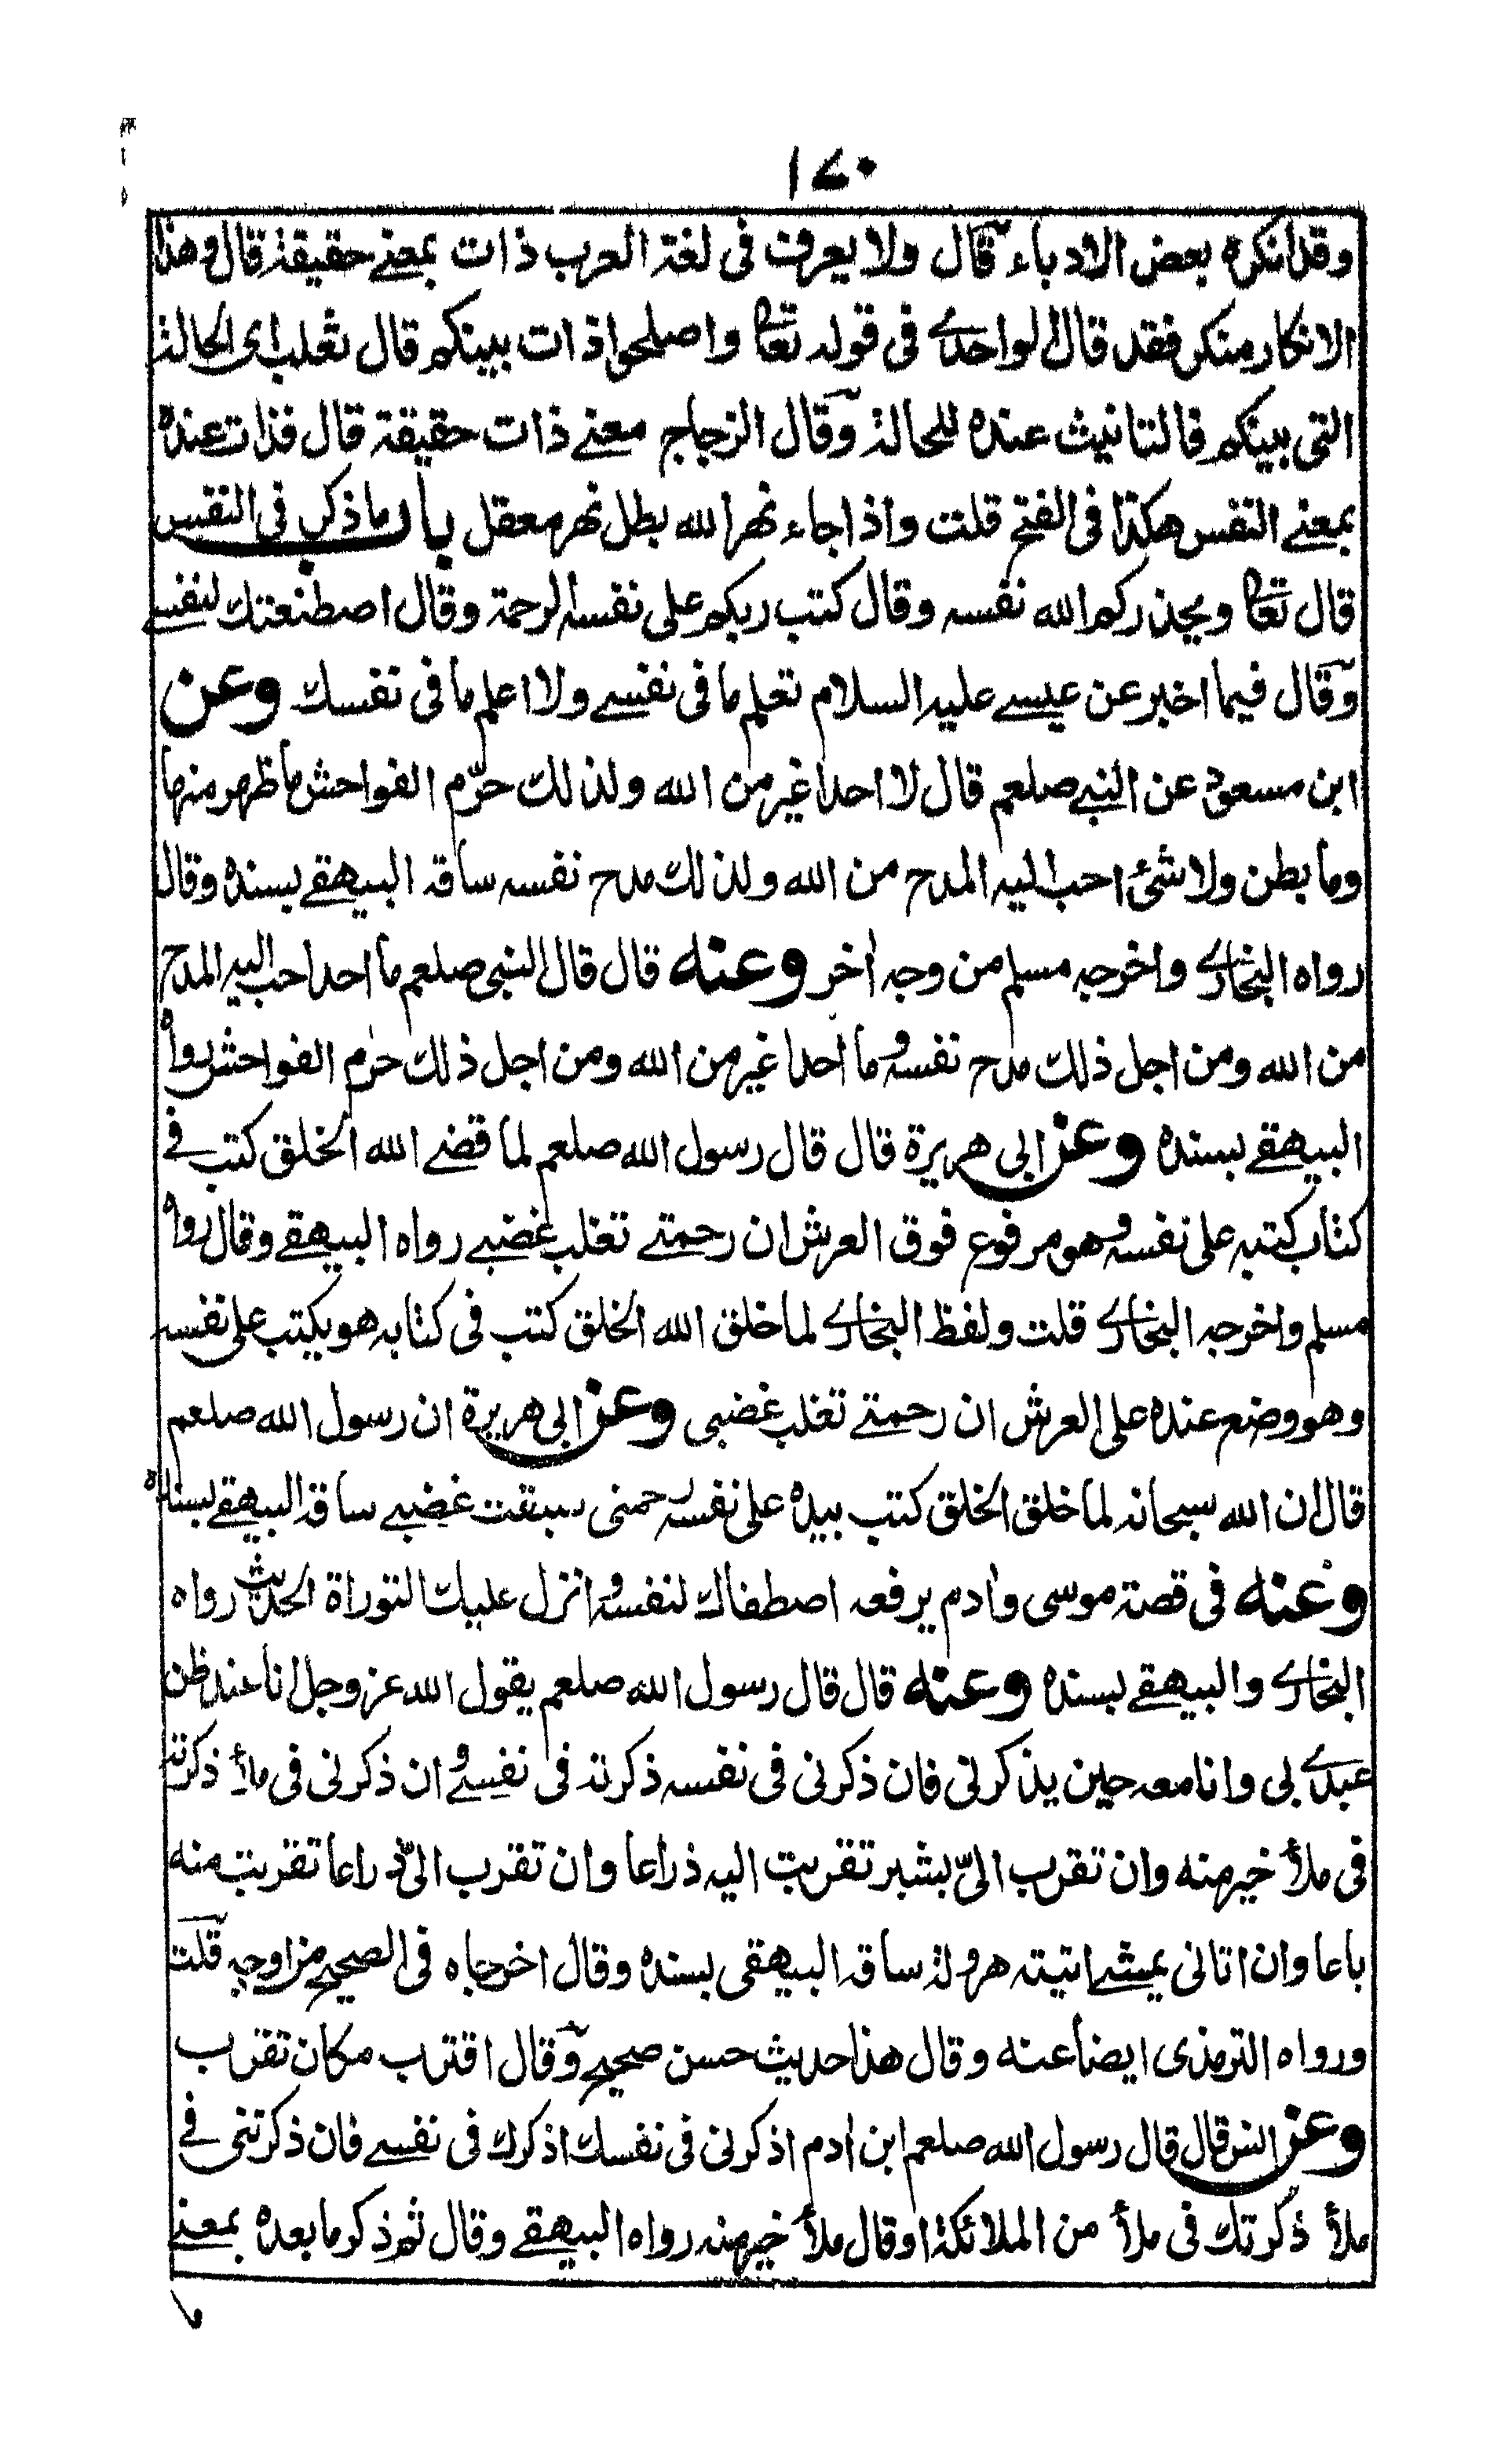 ١٧٠
وقد انكره بعض الادباء وقال ولا يعرف فى لغة العرب ذات بمعنے حقيقة قال وهذا
الانكار منكر فقد قال الواحدے فى قوله تعالىٰ واصلحوا ذات بينكم قال ثعلب اى الحالة
التى بينكم فالتانيث عنده للحالة وقال الزجاج معنے ذات حقيقة قال فذات عنده
بمعنے النفس هكذا فى الفتح قلت واذا جاء نهر الله بطل نهر معقل باب ما ذكر فى النفس
قال تعالىٰ ويحذركم الله نفسه وقال كتب ربكم على نفسه الرحمة وقال اصطنعتك لنفسے
وقال فيما اخبر عن عيسے عليه السلام تعلم ما فى نفسے ولا اعلم ما فى نفسك وعن
ابن مسعود عن النبے صلعم قال لا احد اغير من الله ولذلك حرّم الفواحش ما ظهر منها
وما بطن ولا شئ احب اليه المدح من الله ولذلك مدح نفسه ساقه البيهقے بسنده وقال
رواه البخارے واخرجه مسلم من وجه اٰخر وعنه قال قال النبى صلعم ما احد احب اليه المدح
من الله ومن اجل ذلك مدح نفسه وما احد اغير من الله ومن اجل ذلك حرم الفواحش رواه
البيهقے بسنده وعن ابى هريرة قال قال رسول الله صلعم لما قضے الله الخلق كتب فے
كتاب كتبه على نفسه وهو مرفوع فوق العرش ان رحمتے تغلب غضبے رواه البيهقے وقال رواه
مسلم واخرجه البخارے قلت ولفظ البخارے لما خلق الله الخلق كتب فى كتابه هو يكتب على نفسه
وهو وضع عنده على العرش ان رحمتے تغلب غضبى وعن ابى هريرة ان رسول الله صلعم
قال ان الله سبحانه لما خلق الخلق كتب بيده على نفسه رحمتى سبقت غضبے ساقه البيهقے بسنده
وعنه فى قصة موسى واٰدم يرفعه اصطفاك لنفسه وانزل عليك التوراة الحديث رواه
البخارے والبيهقے بسنده وعنه قال قال رسول الله صلعم يقول الله عز وجل انا عند ظن
عبدے بى وانا معه حين يذكرنى فان ذكرنى فى نفسه ذكرته فى نفسے وان ذكرنى فى ملأ ذكرته
فى ملأ خير منه وان تقرب الىّ بشبر تقربت اليه ذراعا وان تقرب الىّ ذراعا تقربت منه
باعا وان اتانى يمشے اتيته هرولة ساقه البيهقى بسنده وقال اخرجاه فى الصحيح من اوجه قلت
ورواه الترمذى ايضا عنه وقال هذا حديث حسن صحيح وقال اقترب مكان تقرب
وعن انس قال قال رسول الله صلعم ابن اٰدم اذكرنى فى نفسك اذكرك فى نفسے فان ذكرتنى فے
ملأ ذكرتك فى ملأ من الملائكة او قال ملأ خير منه رواه البيهقے وقال ثم ذكر ما بعده بمعنے